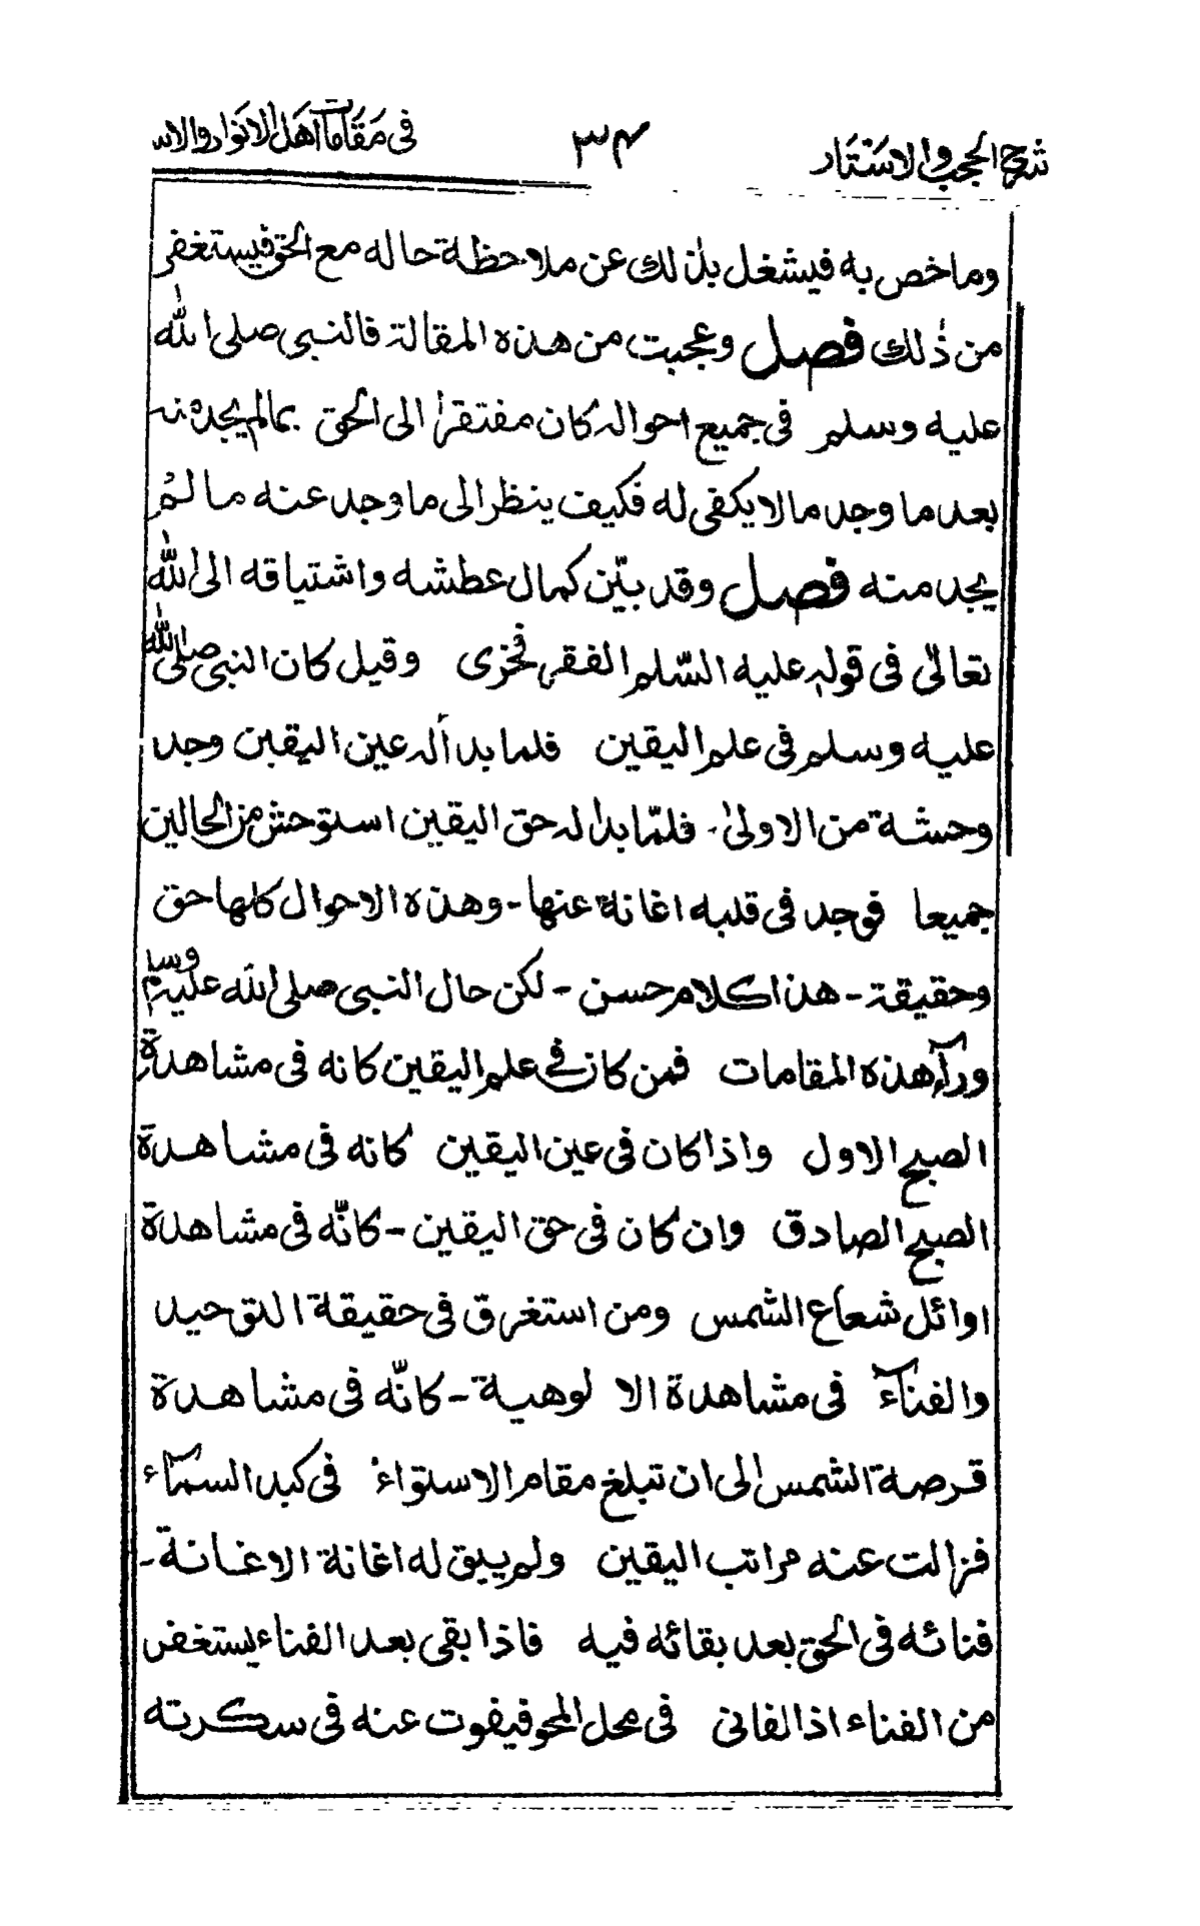 شرح الحجب والاستار ٣٤ فی مقامات اهل الانوار والاسـ
وما خص به فیشغل بذلك عن ملاحظة حاله مع الحق فیستغفر
من ذٰلك فصل وعجبت من هذه المقالة فالنبی صلی الله
علیه وسلم فی جمیع احواله كان مفتقراً الی الحق بمالم یجده منه
بعد ما وجد مالا یكفی له فكیف ینظر الی ما وجد عنه ما لم
یجد منه فصل وقد بیّن كمال عطشه واشتیاقه الی الله
تعالیٰ فی قوله علیه السّلم الفقر فخری وقیل كان النبی صلی الله
علیه وسلم فی علم الیقین فلما بدأ له عین الیقین وجد
وحشة من الاولیٰ۔ فلمّا بدا له حق الیقین استوحش من الحالین
جمیعا فوجد فی قلبه اغانة عنها۔ وهذه الاحوال كلها حق
وحقیقة۔ هذا كلام حسن۔ لكن حال النبی صلی الله علیه وسلم
ورآء هذه المقامات فمن كان فی علم الیقین كانه فی مشاهدةِ
الصبح الاول واذا كان فی عین الیقین كانه فی مشاهدة
الصبح الصادق وان كان فی حق الیقین۔ كانّه فی مشاهدة
اوائل شعاع الشمس ومن استغرق فی حقیقة التوحید
والفنآء فی مشاهدة الا لوهیة۔ كانّه فی مشاهدة
قرصة الشمس الی ان تبلغ مقام الاستواء فی كبد السمآء
فزالت عنه مراتب الیقین ولم یبق له اغانة الا غانة۔
فنائه فی الحق بعد بقائه فیه فاذا بقی بعد الفناء یستغفر
من الفناء اذ الفانی فی محل المحو فیفوت عنه فی سكرته